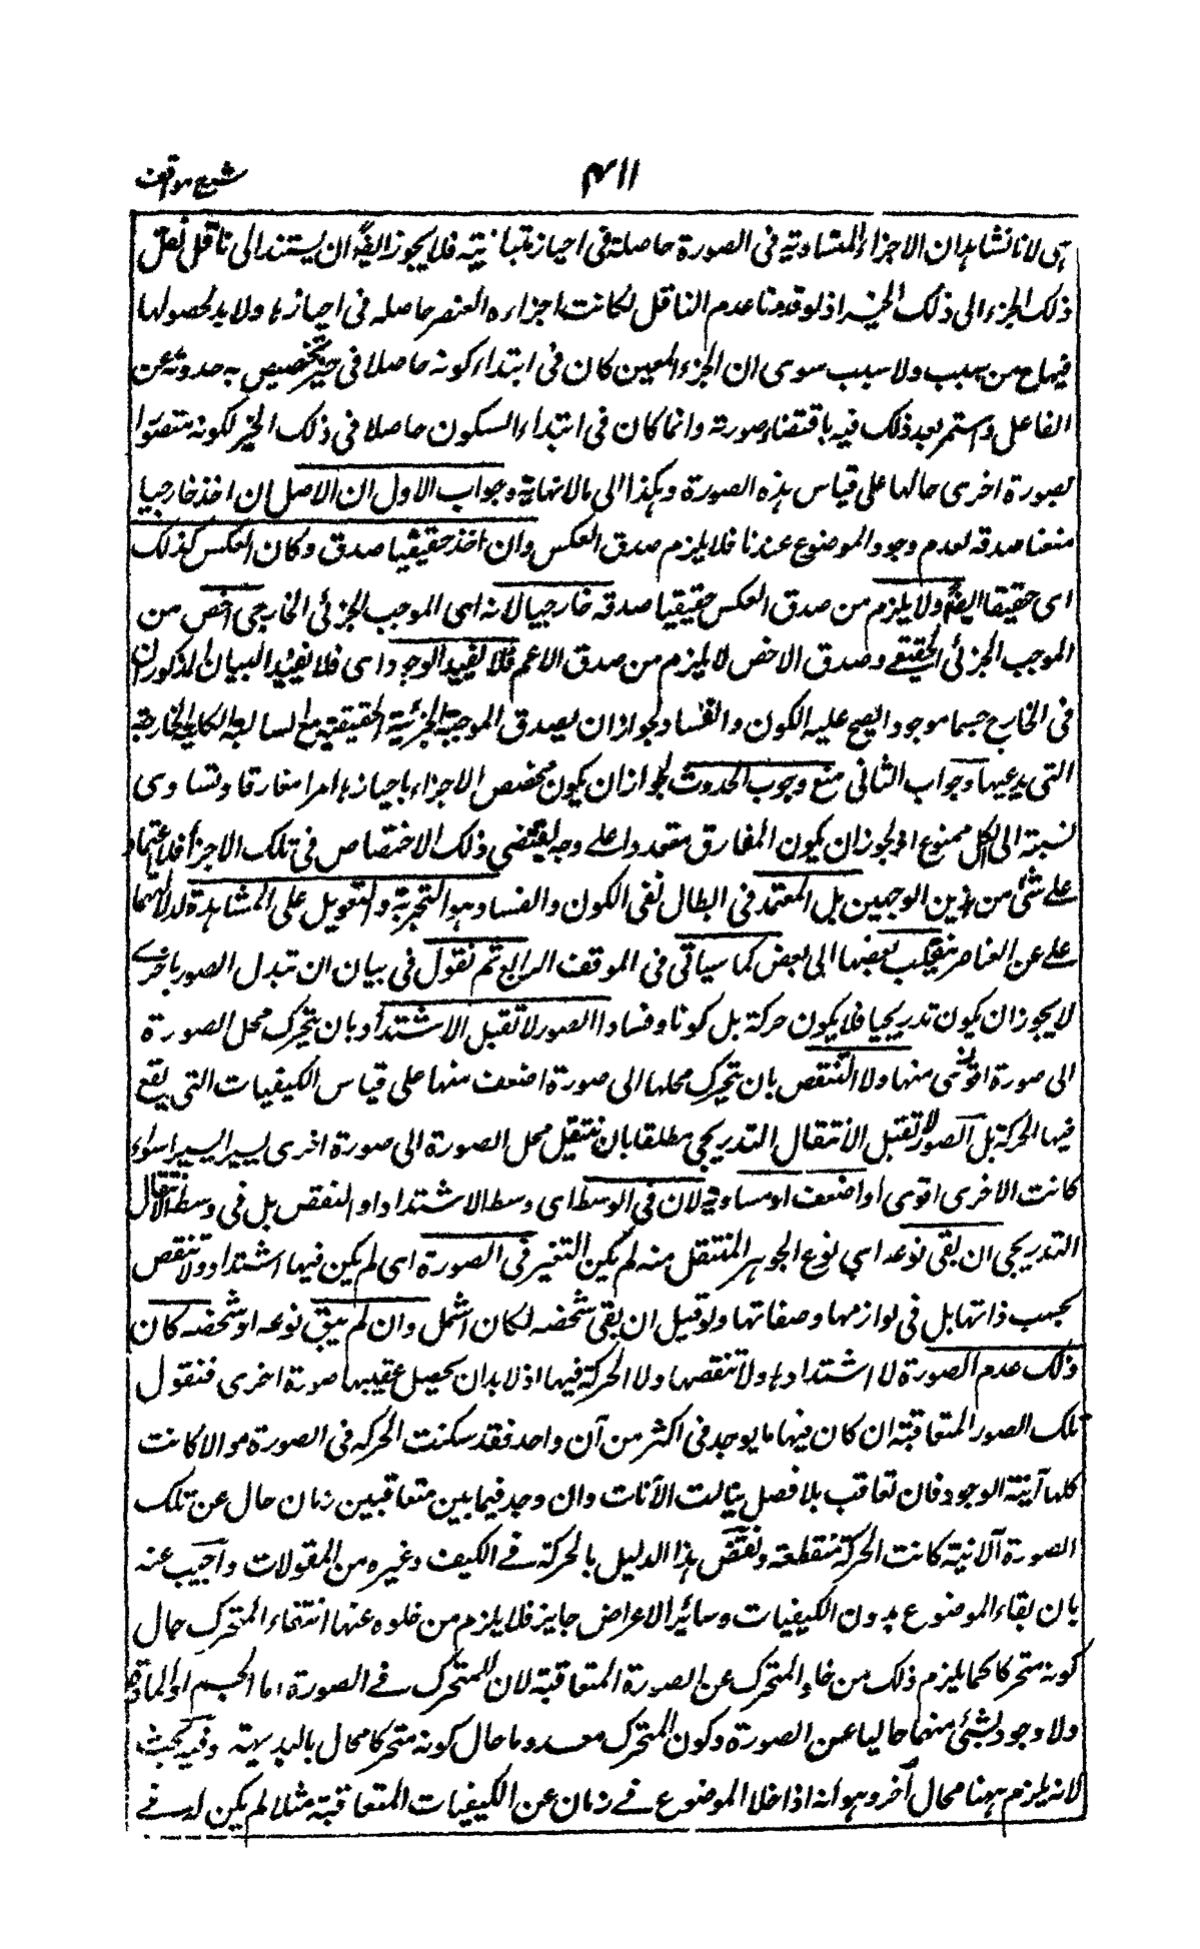 شرح مواقف
٤١١
هى لانا نشاهد ان الاجزاء المتشابهة فى الصورة حاصلة فى احياز متباينة فلا يجوز ايضا ان يستند الى ناقل نقل
ذلك الجزء الى ذلك الحيز اذ لو قدرنا عدم الناقل لكانت اجزاء العنصر حاصله فى احيازها ولا بد لحصولها
فيها ح من سبب ولا سبب سوى ان الجزء المعين كان فى ابتداء كونه حاصلا فى حيز تخصص به حدوثه عن
الفاعل واستمر بعد ذلك فيه باقتضاء صورته وانما كان فى ابتداء السكون حاصلا فى ذلك الحيز لكونه متصورا
بصورة اخرى حالها على قياس هذه الصورة وهكذا الى مالانهاية وجواب الاول ان الاصل ان اخذ خارجيا
منعنا صدقه لعدم وجود الموضوع عندنا فلا يلزم صدق العكس وان اخذ حقيقيا صدق وكان العكس كذلك
اى حقيقا ايضا ولا يلزم من صدق العكس حقيقيا صدقه خارجيا لانه اى الموجب الجزئى الخارجى اخص من
الموجب الجزئى الحقيقے وصدق الاخص لا يلزم من صدق الاعم فلا يفيد الوجود اى فلا يفيد البيان المذكور ان
فى الخارج جسما موجود ايصح عليه الكون والفساد لجواز ان يصدق الموجبة الجزئية الحقيقية مع السالبة الكلية الخارجة
التى يدعيها وجواب الثانى منع وجوب الحدوث لجواز ان يكون مخصص الاجزاء باحيازها امرا مفارقا وتساوى
نسبته الى الكل ممنوع اذ يجوز ان يكون المفارق متعددا على وجه يقتضى ذلك الاختصاص فى تلك الاجزاء فلا اعتماد
علے شئ من هذين الوجهين بل المعتمد فى ابطال نفى الكون والفساد هو التجربة والتعويل على المشاهدة لدلالتهما
علے عن العناصر ينقلب بعضها الى بعض كما سياتى فى الموقف الرابع ثم نقول فى بيان ان تبدل الصور باخرے
لا يجوز ان يكون تدريجيا فلا يكون حركة بل كونا وفسادا الصور لا تقبل الاشتداد بان يتحرك محل الصورة
الى صورة اقوى منها ولا التنقص بان يتحرك محلها الى صورة اضعف منها على قياس الكيفيات التى يقع
فيها الحركة بل الصور لا تقبل الانتقال التدريجى مطلقا بان ينتقل محل الصورة الى صورة اخرى يسيرا يسيرا سواء
كانت الاخرى اقوى او اضعف او مساوية لان فى الوسط اى وسط الاشتداد او التنقص بل فى وسط الانتقال
التدريجى ان بقى نوعه اى نوع الجوهر المنتقل منه لم يكن التغير فى الصورة اى لم يكن فيها اشتداد ولا تنقص
بحسب ذاتها بل فى لوازمها وصفاتها ولو قيل ان بقى شخصه لكان اشمل وان لم يبق نوعه او شخصه كان
ذلك عدم الصورة لا اشتدادها ولا تنقصها ولا الحركة فيها اذ لا بد ان يحصل عقيبها صورة اخرى فنقول
تلك الصور المتعاقبة ان كان فيها ما يوجد فى اكثر من آن واحد فقد سكنت الحركه فى الصورة والا كانت
كلها آنية الوجود فان تعاقب بلا فصل يتالت الآنات وان وجد فيما بين متعاقبين زمان خال عن تلك
الصورة الآنية كانت الحركة منقطعة ونقض هذا الدليل بالحركة فے الكيف وغيره من المقولات واجيب عنه
بان بقاء الموضوع بدون الكيفيات وسائر الاعراض جايز فلا يلزم من خلوه عنها انتفاء المتحرك حال
كونه متحركا كما يلزم ذلك من خلو المتحرك عن الصورة المتعاقبة لان المتحرك فے الصورة اما الجسم او المادة
ولا وجود لشئ منهما خاليا عن الصورة وكون المتحرك معدوما حال كونه متحركا محال بالبديهة وفيه بحث
لانه يلزم ههنا محال آخر وهو انه اذا خلا الموضوع فے زمان عن الكيفيات المتعاقبة مثلا لم يكن له فے